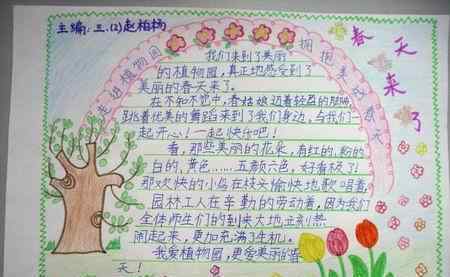 主编:三、(2)赵柏杨
走进植物园
拥抱美好春天
春天来了
我们来到了美丽
的植物园,真正地感受到了
美丽的春天来了。
在不知不觉中,春姑娘迈着轻盈的脚步
跳着优美的舞蹈来到了我们身边,与我们一
起开心!一起快乐吧!
看,那些美丽的花朵,有红的、粉的
白的,黄色……五颜六色,好看极了!
那欢快的小鸟在枝头愉快地歌唱着,
园林工人在辛勤的劳动着,因为我们
全体师生们的到来大地立刻热
闹起来,更加充满了生机。
我爱植物园,更爱美丽的春
天!